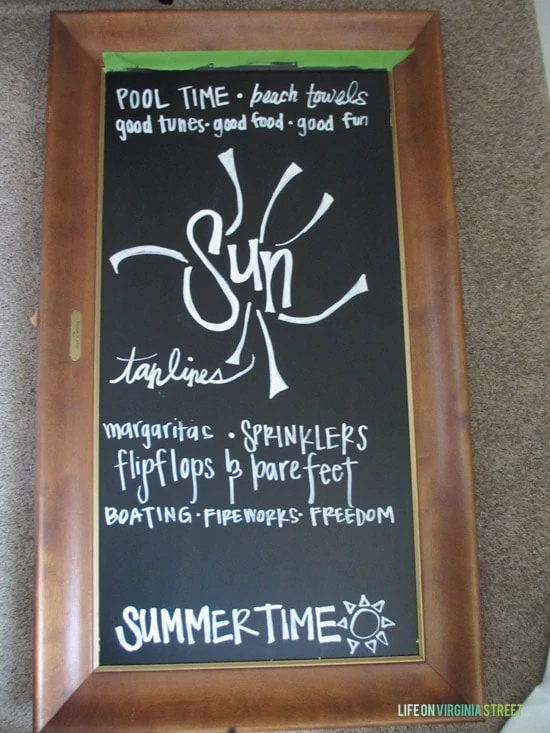 POOL TIME • beach towels
good tunes • good food • good fun
Sun
tanlines
margaritas • SPRINKLERS
flipflops & barefeet
BOATING • FIREWORKS • FREEDOM
SUMMERTIME
LIFE ON VIRGINIA STREET